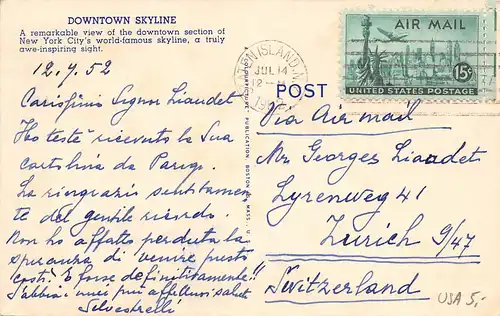 DOWNTOWN SKYLINE
A remarkable view of the downtown section of
New York City's world-famous skyline, a truly
awe-inspiring sight.
12.7.52
Carissimo Signor Liaudet
Ho testè ricevuto la Sua
cartolina da Parigi.
La ringrazio sentitamen-
te del gentile ricordo.
Non ho affatto perduta la
speranza di venire presto
costì. E forse definitivamente!!
S'abbia i miei più affettuosi saluti
Silvestrelli
STATEN ISLAND, N.Y.
JUL 14
12
AIR MAIL
15¢
UNITED STATES POSTAGE
POST
Via Air mail
Mr Georges Liaudet
Lyrenweg 41
Zurich 9/47
Switzerland
USA 5,-